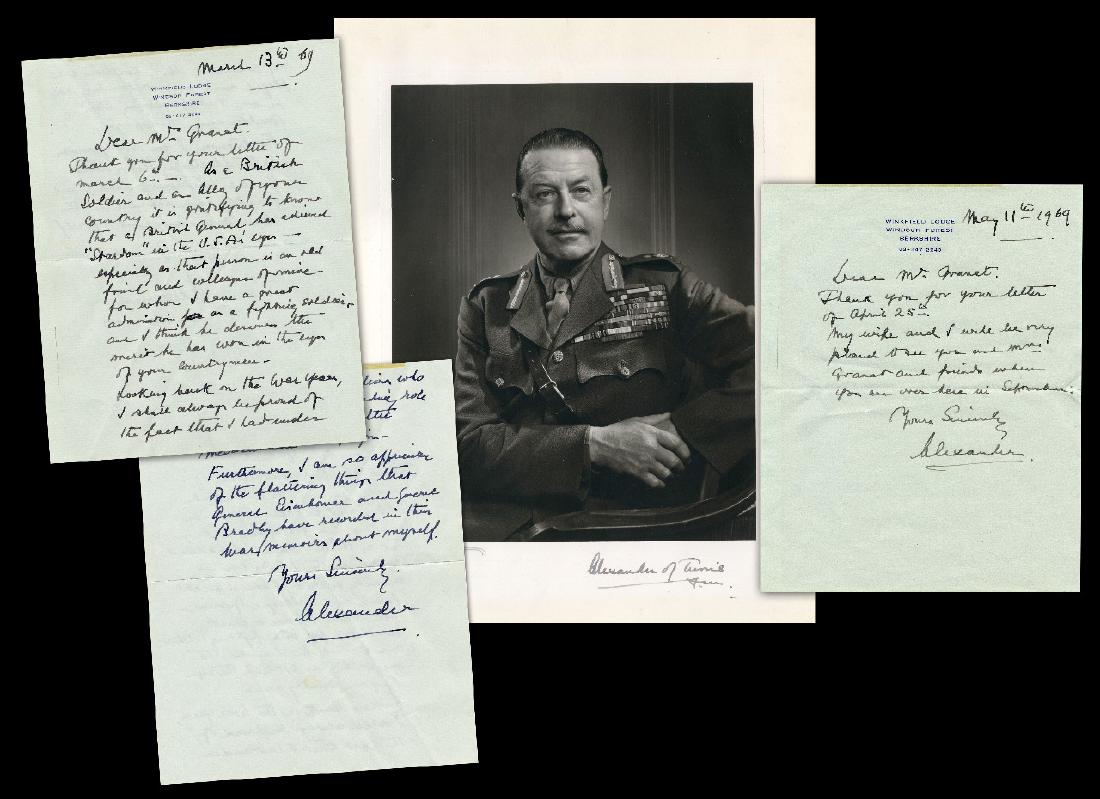 March 13th 69
WINKFIELD LODGE
WINDSOR FOREST
BERKSHIRE
Dear Mr Granat.
Thank you for your letter of
March 6th. As a British
Soldier and an Ally of your
country it is gratifying to know
that a British General has achieved
"Stardom" in the U.S.A's eyes —
especially as that person is an old
friend and colleague of mine —
for whom I have a great
admiration as a fighting soldier,
and I think he deserves the
merit he has won in the eyes
of your countrymen —
Looking back on the War years,
I shall always be proud of
the fact that I had under
who
role
Furthermore, I am so appreciative
of the flattering things that
General Eisenhower and General
Bradley have recorded in their
War memoirs about myself.
Yours Sincerely.
Alexander
Alexander of Tunis
F.M.
WINKFIELD LODGE
WINDSOR FOREST
BERKSHIRE
May 11th 1969
Dear Mr Granat.
Thank you for your letter
of April 25th
My wife and I will be very
pleased to see you and Mrs
Granat and friends when
you are over here in September.
Yours Sincerely
Alexander.